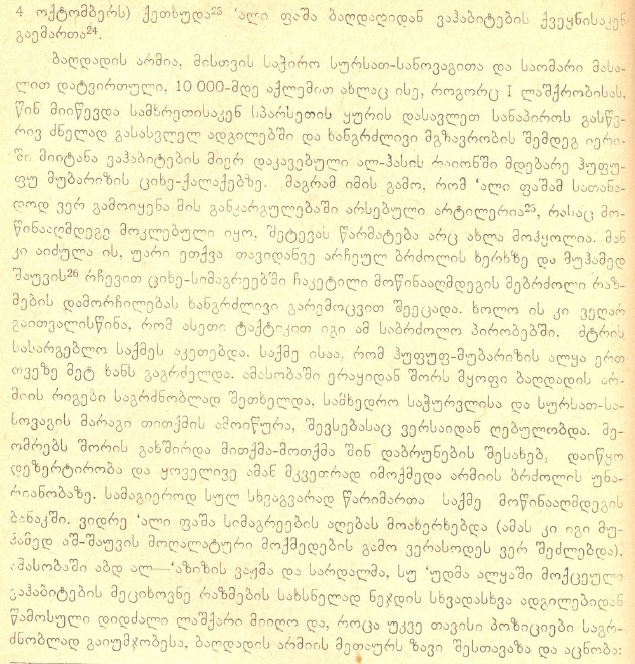 4 ოქტომბერს) ქეთხუდა²³ ‘ალი ფაშა ბაღდადიდან ვაჰაბიტების ქვეყნისაკენ
გაემართა²⁴.
ბაღდადის არმია, მისთვის საჭირო სურსათ-სანოვაგითა და საომარი მასა-
ლით დატვირთული, 10 000-მდე აქლემით ახლაც ისე, როგორც I ლაშქრობისას,
წინ მიიწევდა სამხრეთისაკენ სპარსეთის ყურის დასავლეთ სანაპიროს გასწვ-
რივ ძნელად გასასვლელ ადგილებში და ხანგრძლივი მგზავრობის შემდეგ იერი-
ში მიიტანა ვაჰაბიტების მიერ დაკავებული ალ-ჰასის რაიონში მდებარე ჰუფუ-
ფუ მუბარიზის ციხე-ქალაქებზე. მაგრამ იმის გამო, რომ ‘ალი ფაშამ სათანა-
დოდ ვერ გამოიყენა მის განკარგულებაში არსებული არტილერია²⁵, რასაც მო-
წინააღმდეგე მოკლებული იყო, შეტევას წარმატება არც ახლა მოჰყოლია. მან
კი აიძულა ის, უარი ეთქვა თავიდანვე არჩეულ ბრძოლის ხერხზე და მუჰამედ
შაუვის²⁶ რჩევით ციხე-სიმაგრეებში ჩაკეტილი მოწინააღმდეგის მებრძოლი რაზ-
მების დამორჩილებას ხანგრძლივი გარემოცვით შეეცადა. ხოლო ის კი ვეღარ
გაითვალისწინა, რომ ასეთი ტაქტიკით იგი ამ საბრძოლო პირობებში, მტრის
სასარგებლო საქმეს აკეთებდა. საქმე ისაა, რომ ჰუფუფ-მუბარიზის ალყა ერთ
თვეზე მეტ ხანს გაგრძელდა. ამასობაში ერაყიდან შორს მყოფი ბაღდადის არ-
მიის რიგები საგრძნობლად შეთხელდა, სამხედრო საჭურვლისა და სურსათ-სა-
ნოვაგის მარაგი თითქმის ამოიწურა, შევსებასაც ვერსაიდან ღებულობდა. მე-
ომრებს შორის გახშირდა მითქმა-მოთქმა შინ დაბრუნების შესახებ, დაიწყო
დეზერტირობა და ყოველივე ამან მკვეთრად იმოქმედა არმიის ბრძოლის უნა-
რიანობაზე. სამაგიეროდ სულ სხვაგვარად წარიმართა საქმე მოწინააღმდეგის
ბანაკში. ვიდრე ‘ალი ფაშა სიმაგრეების აღებას მოახერხებდა (ამას კი იგი მუ-
ჰამედ აშ-შაუვის მოღალატური მოქმედების გამო ვერასოდეს ვერ შეძლებდა),
ამასობაში აბდ ალ—‘აზიზის ვაჟმა და სარდალმა, სუ ‘უდმა ალყაში მოქცეული
ვაჰაბიტების მეციხოვნე რაზმების სახსნელად ნეჯდის სხვადასხვა ადგილებიდან
წამოსული დიდძალი ლაშქარი მიიღო და, როცა უკვე თავისი პოზიციები საგრ-
ძნობლად გაიუმჯობესა, ბაღდადის არმიის მეთაურს ზავი შესთავაზა და აცნობა: